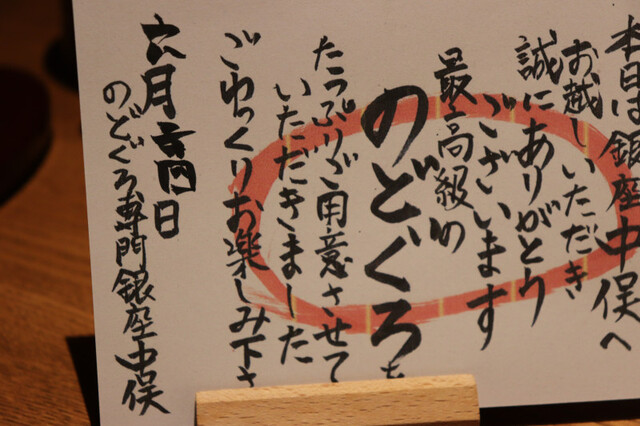 本日は銀座中俣へ
お越しいただき
誠にありがとう
ございます
最高級の
のどぐろを
たっぷりご用意させて
いただきました
ごゆっくりお楽しみ下さ
六月 日
のどぐろ専門銀座中俣